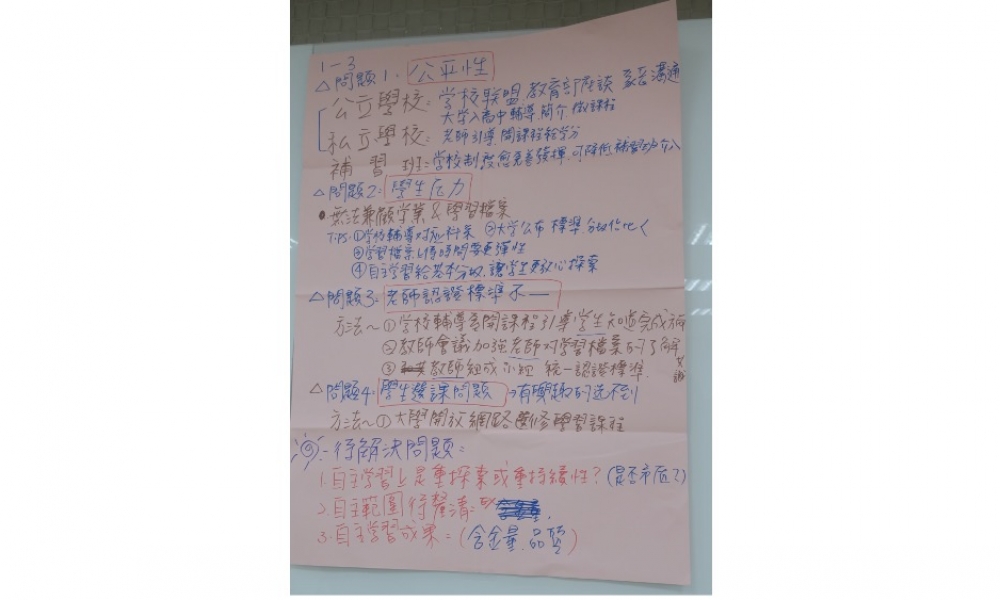 1-3
△問題1、公平性
公立學校：学校联盟 教育部座談 家長溝通
大学入高中輔導、簡介 微課程
私立學校：老師引導、開課程給学分
補習班：学校制度愈完善發揮，可降低補習班介入
△問題2：學生压力
●無法兼顧学業&學習檔案
Tips：①学校輔導对应科系 ②大学公布標準
③学習檔案上傳時間要更彈性
④自主学習給基本分數，讓学生更放心探索
△問題3：老師認證標準不一
方法～①学校輔導室開課程引導学生知道完成
②教師會議加強老師对学習檔案的了解
③教師組成小組 統一認證標準
△問題4：學生選課問題→有興趣的选不到
方法～①大學開放網路 修學習課程
待解決問題：
1.自主学習上是重探索或重持續性？
2.自主範圍待釐清：
3.自主学習成果=(含金量、品質)